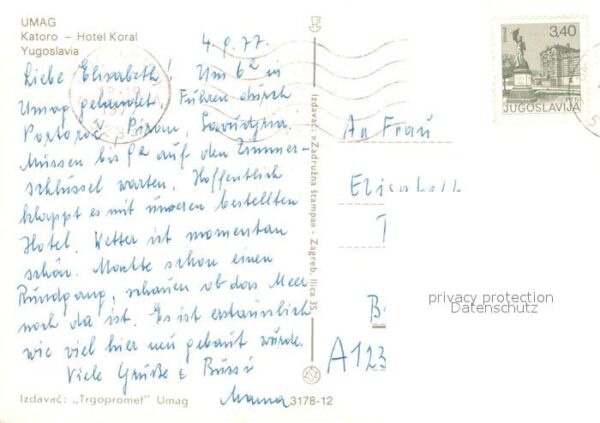 UMAG
Katoro – Hotel Koral
Yugoslavia
4.9.77.
Liebe Elisabeth! Um 6² in
Umag gelandet. Fuhren durch
Portorož, Piran, Savudrija.
Müssen bis 9² auf den Zimmer-
schlüssel warten. Hoffentlich
klappt es mit unserem bestellten
Hotel. Wetter ist momentan
schön. Machte schon einen
Rundgang, schauen ob das Meer
noch da ist. Es ist erstaunlich
wie viel hier neu gebaut wurde.
Viele Grüße & Bussi
Mama
Izdavač: „Trgopromet" Umag
3178-12
Izdavač: »Zadružna štampa« - Zagreb, Ilica 35
3,40
JUGOSLAVIJA
An Frau
Elisabeth
B
A123
privacy protection
Datenschutz